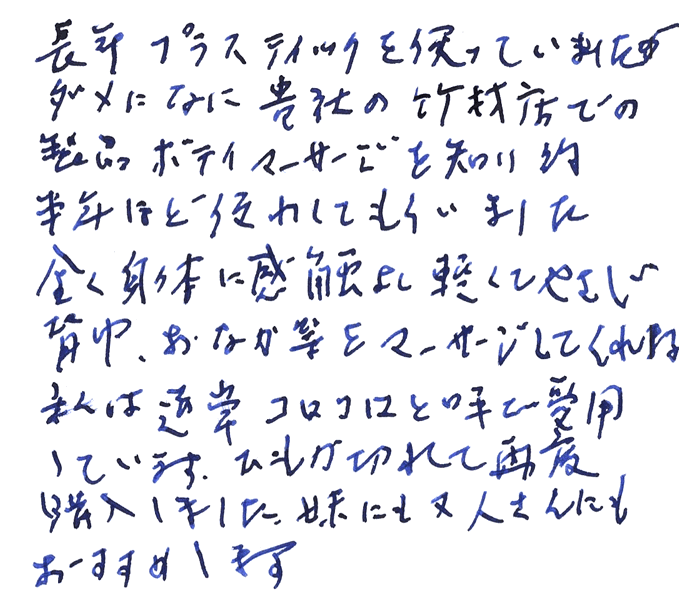 長年プラスティックを使っていましたが
ダメになに貴社の竹材店での
製品ボディマーサージを知り約
半年ほど使わしてもらいました
全く身体に感触よし軽くてやさしい
背中、おなか等をマーサージしてくれる
私は通常コロコロと呼で愛用
しています。ひもが切れて再度
購入しました。妹にも又人さんにも
おすすめします